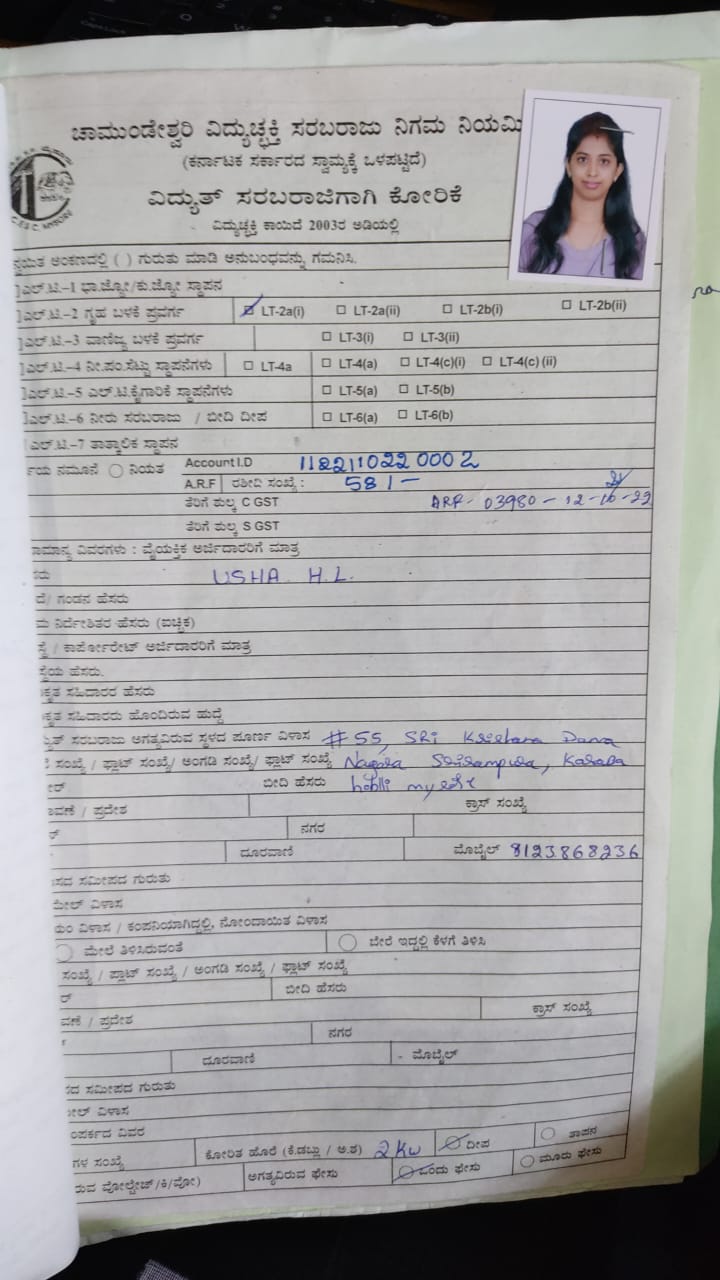 ಚಾಮುಂಡೇಶ್ವರಿ ವಿದ್ಯುಚ್ಛಕ್ತಿ ಸರಬರಾಜು ನಿಗಮ ನಿಯಮಿ
(ಕರ್ನಾಟಕ ಸರ್ಕಾರದ ಸ್ವಾಮ್ಯಕ್ಕೆ ಒಳಪಟ್ಟಿದೆ)
ವಿದ್ಯುತ್ ಸರಬರಾಜಿಗಾಗಿ ಕೋರಿಕೆ
ವಿದ್ಯುಚ್ಛಕ್ತಿ ಕಾಯಿದೆ 2003ರ ಅಡಿಯಲ್ಲಿ
ಅಂಕಣದಲ್ಲಿ ( ) ಗುರುತು ಮಾಡಿ ಅನುಬಂಧವನ್ನು ಗಮನಿಸಿ.
ಎಲ್.ಟಿ.-1 ಭಾ.ಜ್ಯೋ/ಕು.ಜ್ಯೋ ಸ್ಥಾಪನ
ಎಲ್.ಟಿ.-2 ಗೃಹ ಬಳಕೆ ಪ್ರವರ್ಗ LT-2a(i) LT-2a(ii) LT-2b(i) LT-2b(ii)
ಎಲ್.ಟಿ.-3 ವಾಣಿಜ್ಯ ಬಳಕೆ ಪ್ರವರ್ಗ LT-3(i) LT-3(ii)
ಎಲ್.ಟಿ.-4 ನೀ.ಪಂ.ಸೆಟ್ಟು ಸ್ಥಾಪನೆಗಳು LT-4a LT-4(a) LT-4(c)(i) LT-4(c)(ii)
ಎಲ್.ಟಿ.-5 ಎಲ್.ಟಿ.ಕೈಗಾರಿಕೆ ಸ್ಥಾಪನೆಗಳು LT-5(a) LT-5(b)
ಎಲ್.ಟಿ.-6 ನೀರು ಸರಬರಾಜು / ಬೀದಿ ದೀಪ LT-6(a) LT-6(b)
ಎಲ್.ಟಿ.-7 ತಾತ್ಕಾಲಿಕ ಸ್ಥಾಪನ
ನಮೂನೆ ನಿಯತ Account I.D 1182110220002
A.R.F ರಶೀದಿ ಸಂಖ್ಯೆ : 581-
ತೆರಿಗೆ ಶುಲ್ಕ C GST ARF- 03980-12-10-22
ತೆರಿಗೆ ಶುಲ್ಕ S GST
ವಿವರಗಳು : ವೈಯಕ್ತಿಕ ಅರ್ಜಿದಾರರಿಗೆ ಮಾತ್ರ
USHA H.L.
ಗಂಡನ ಹೆಸರು
ನಿರ್ದೇಶಿತರ ಹೆಸರು (ಐಚ್ಛಿಕ)
/ ಕಾರ್ಪೋರೇಟ್ ಅರ್ಜಿದಾರರಿಗೆ ಮಾತ್ರ
ಹೆಸರು.
ಸಹಿದಾರರ ಹೆಸರು
ಸಹಿದಾರರು ಹೊಂದಿರುವ ಹುದ್ದೆ
ಸರಬರಾಜು ಅಗತ್ಯವಿರುವ ಸ್ಥಳದ ಪೂರ್ಣ ವಿಳಾಸ # 55, SRi
ಸಂಖ್ಯೆ / ಫ್ಲಾಟ್ ಸಂಖ್ಯೆ/ ಅಂಗಡಿ ಸಂಖ್ಯೆ/ ಫ್ಲಾಟ್ ಸಂಖ್ಯೆ
ಬೀದಿ ಹೆಸರು hobli
/ ಪ್ರದೇಶ ಕ್ರಾಸ್ ಸಂಖ್ಯೆ
ನಗರ
ದೂರವಾಣಿ ಮೊಬೈಲ್ 8123868236
ಸಮೀಪದ ಗುರುತು
ವಿಳಾಸ
ವಿಳಾಸ / ಕಂಪನಿಯಾಗಿದ್ದಲ್ಲಿ, ನೋಂದಾಯಿತ ವಿಳಾಸ
ಮೇಲೆ ತಿಳಿಸಿರುವಂತೆ ಬೇರೆ ಇದ್ದಲ್ಲಿ ಕೆಳಗೆ ತಿಳಿಸಿ
ಸಂಖ್ಯೆ / ಪ್ಲಾಟ್ ಸಂಖ್ಯೆ / ಅಂಗಡಿ ಸಂಖ್ಯೆ / ಫ್ಲಾಟ್ ಸಂಖ್ಯೆ
ಬೀದಿ ಹೆಸರು
/ ಪ್ರದೇಶ ಕ್ರಾಸ್ ಸಂಖ್ಯೆ
ನಗರ
ದೂರವಾಣಿ ಮೊಬೈಲ್
ಸಮೀಪದ ಗುರುತು
ವಿಳಾಸ
ವಿವರ
ಸಂಖ್ಯೆ ಕೋರಿತ ಹೊರೆ (ಕೆ.ಡಬ್ಲು / ಅ.ಶ) 2 Kw ದೀಪ ತಾಪನ
ಅಗತ್ಯವಿರುವ ಫೇಸು ಒಂದು ಫೇಸು ಮೂರು ಫೇಸು